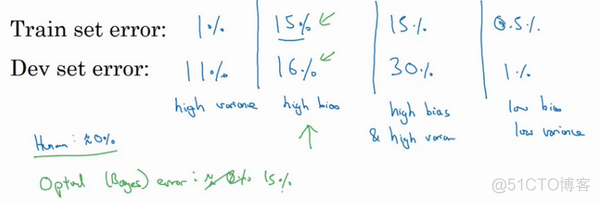 Train set error: 1% 15% 15% 0.5%
Dev set error: 11% 16% 30% 1%
high variance high bias high bias low bias
& high varian low variance
Human: ≈0%
Optimal (Bayes) error: ≈ 0% 15%
@51CTO博客